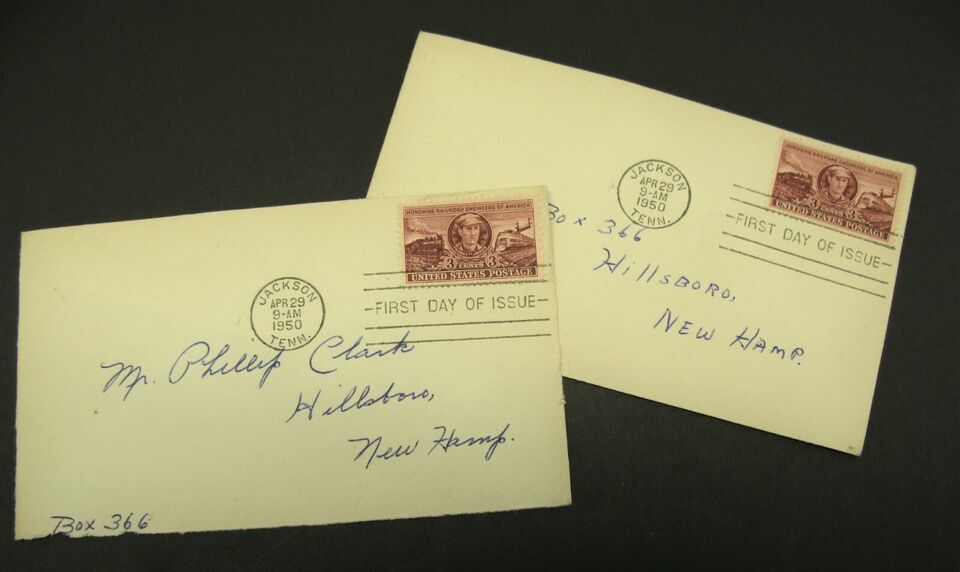 HONORING RAILROAD ENGINEERS OF AMERICA
3 CENTS 3
UNITED STATES POSTAGE
JACKSON
APR 29
9-AM
1950
TENN.
—FIRST DAY OF ISSUE—
Mr. Phillip Clark
Hillsboro,
New Hamp.
Box 366
HONORING RAILROAD ENGINEERS OF AMERICA
3 CENTS 3
UNITED STATES POSTAGE
JACKSON
APR 29
9-AM
1950
TENN.
—FIRST DAY OF ISSUE—
Box 366
Hillsboro,
New Hamp.